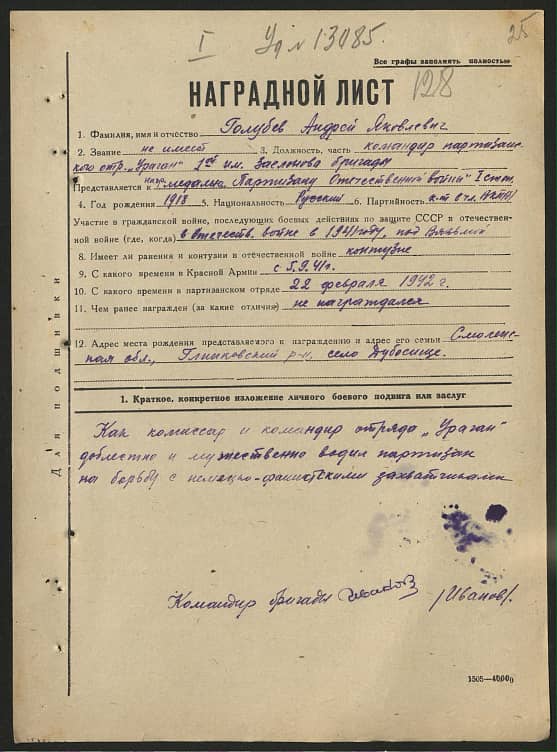 I Уд № 13085. 25
Все графы заполнять полностью
128
НАГРАДНОЙ ЛИСТ
1. Фамилия, имя и отчество Голубев Андрей Яковлевич
2. Звание не имеет 3. Должность, часть командир партизанс-
кого отр. „Ураган" 1ой им. Заслонова бригады
Представляется к награ медалью „Партизану Отечественной войны" I степ.
4. Год рождения 1918 5. Национальность Русский 6. Партийность к-т в чл. ВКП(б)
Участие в гражданской войне, последующих боевых действиях по защите СССР в отечествен-
ной войне (где, когда) в Отечеств. войне в 1941 году, под Вязьмой
8. Имеет ли ранения и контузии в отечественной войне контузие
9. С какого времени в Красной Армии с 5.9.41г.
10. С какого времени в партизанском отряде 22 февраля 1942 г.
11. Чем ранее награжден (за какие отличия) не награждался
12. Адрес места рождения представляемого к награждению и адрес его семьи Смолен-
ская обл., Глинковский р-н, село Дубосище.
Для подшивки
1. Краткое, конкретное изложение личного боевого подвига или заслуг
Как комиссар и командир отряда „Ураган"
доблестно и мужественно водил партизан
на борьбу с немецко-фашистскими захватчиками
Командир бригады Иванов /Иванов/.
1505—40000